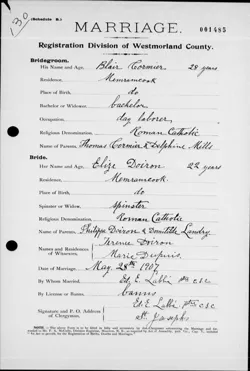 (Schedule B.)
30
MARRIAGE.
001485
Registration Division of Westmorland County.
Bridegroom.
His Name and Age, Blair Cormier 29 years
Residence, Memramcook
Place of Birth, do
Bachelor or Widower, bachelor
Occupation, day laborer
Religious Denomination, Roman Catholic
Names of Parents, Thomas Cormier & Delphine Mills
Bride.
Her Name and Age, Elize Doiron 22 years
Residence, Memramcook
Place of Birth, do
Spinster or Widow, spinster
Religious Denomination, Roman Catholic
Names of Parents, Philippe Doiron & Domitilde Landry
Names and Residences of Witnesses, Terence Doiron
Marie Dupuis
Date of Marriage, May 28th 1907
By Whom Married, Ed. E. Labbé Ptre c.s.c.
By License or Banns, banns
Signature and P. O. Address of Clergyman, Ed. E. Labbé Ptre c.s.c.
St. Josephs